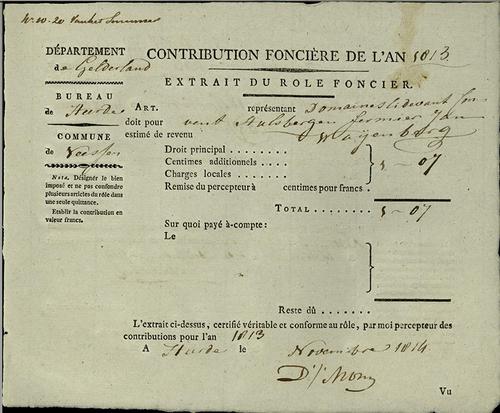 DÉPARTEMENT
de Gelderland
CONTRIBUTION FONCIÈRE DE L'AN 1813.
EXTRAIT DU ROLE FONCIER.
BUREAU
de Heerde
COMMUNE
de Veessen
NOTA. Désigner le bien
imposé et ne pas confondre
plusieurs articles du rôle dans
une seule quittance.
Etablir la contribution en
valeur francs.
ART. représentant Domaines
doit pour fermier Jan
estimé de revenu
Droit principal . . . . . . . .
Centimes additionnels . . . . .
Charges locales . . . . . . . .
Remise du percepteur à centimes pour francs .
5 - 07
TOTAL . . . . . . . 5 - 07
Sur quoi payé à-compte:
Le
Reste dû . . . . . .
L'extrait ci-dessus, certifié véritable et conforme au rôle, par moi percepteur des
contributions pour l'an 1813
A Heerde le Novembre 1814.
Vu